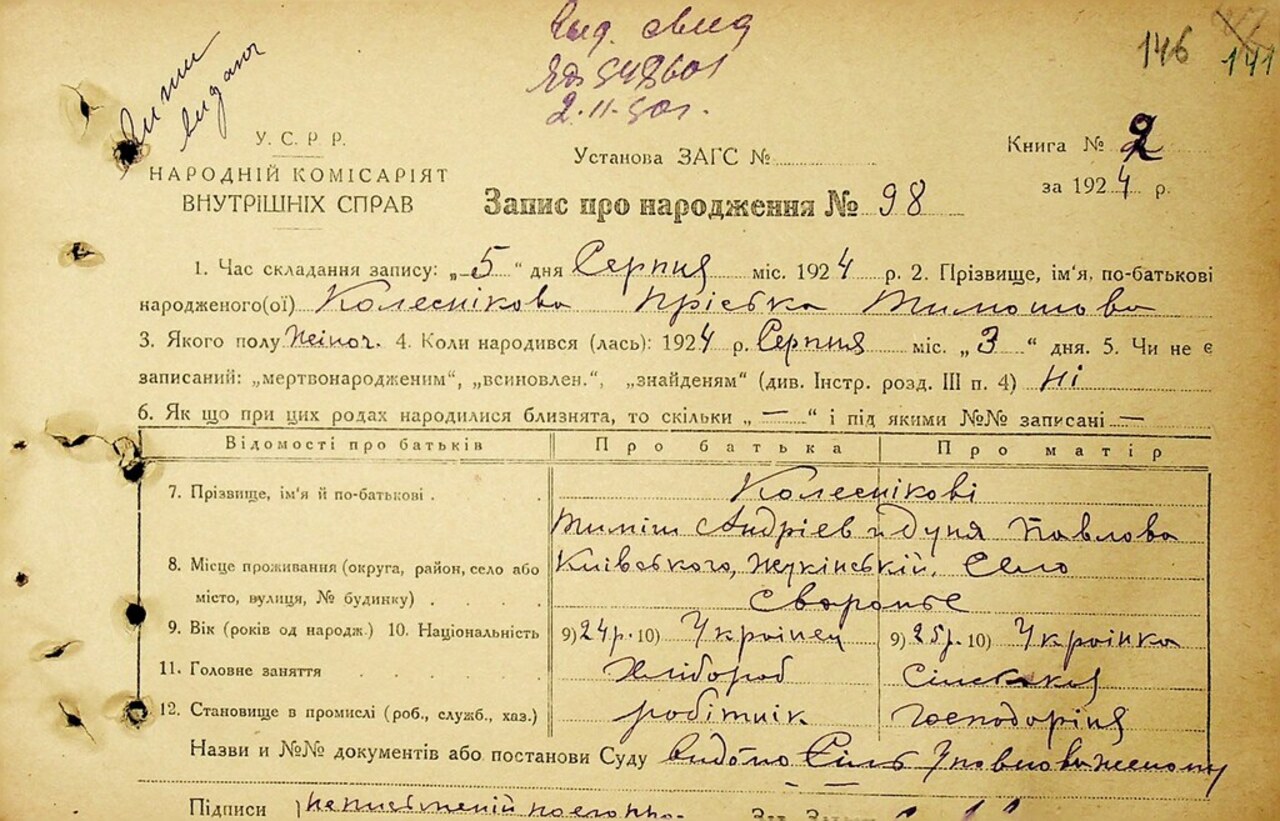 146 141
Вид. свид
2.11.50г.
У. С. Р. Р.
НАРОДНІЙ КОМІСАРІЯТ
ВНУТРІШНІХ СПРАВ
Установа ЗАГС №
Книга № 2
за 1924 р.
Запис про народження № 98
1. Час складання запису: „5“ дня Серпня міс. 1924 р. 2. Прізвище, ім'я, по-батькові
народженого(ої) Колеснікова Пріська Тимошова
3. Якого полу Жіноч. 4. Коли народився (лась): 1924 р. Серпня міс. „3“ дня. 5. Чи не є
записаний: „мертвонародженим“, „всиновлен.“, „знайденям“ (див. Інстр. розд. III п. 4) Ні
6. Як що при цих родах народилися близнята, то скільки „—“ і під якими №№ записані —
Відомості про батьків Про батька Про матір
7. Прізвище, ім'я й по-батькові . . Колеснікові
Тиміш Андріев и Дуня Павлова
8. Місце проживання (округа, район, село або Київського, Жукінській, Село
місто, вулиця, № будинку) . . . . Сваромьє
9. Вік (років од народж.) 10. Національність 9) 24р. 10) Украінец 9) 25р. 10) Украінка
11. Головне заняття . . . . Хлібороб Сільськая
12. Становище в промислі (роб., служб., хаз.) робітнік Господоріня
Назви и №№ документів або постанови Суду видомо Сіль Уповноваженому
Підписи